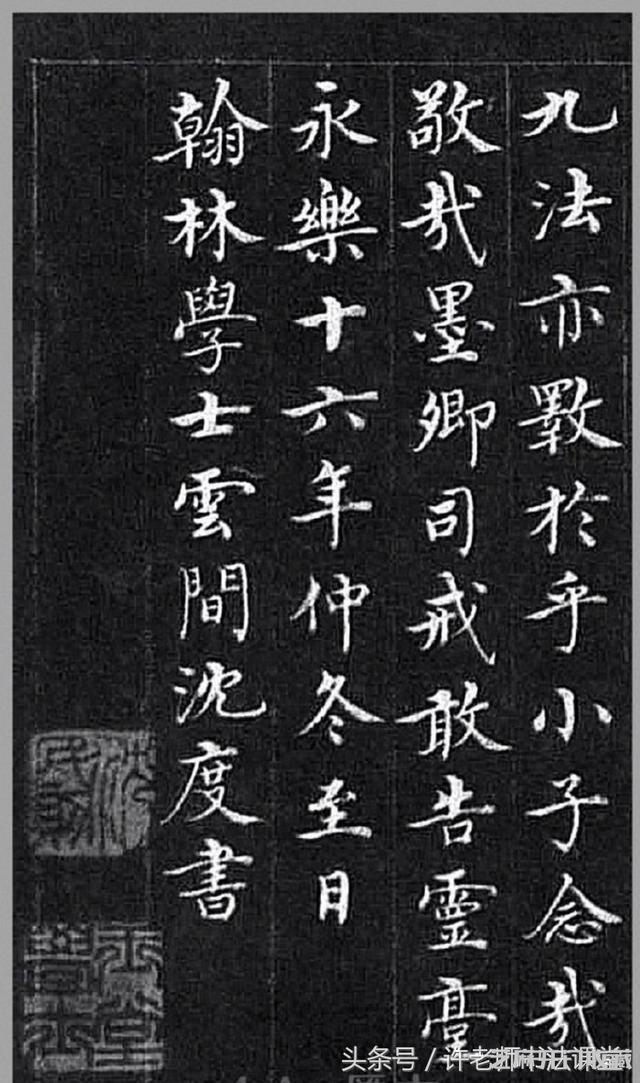 九法亦斁於乎小子念哉
敬哉墨卿司戒敢告靈臺
永樂十六年仲冬至日
翰林學士雲間沈度書
沈民則
头条号 / 许老师书法课堂